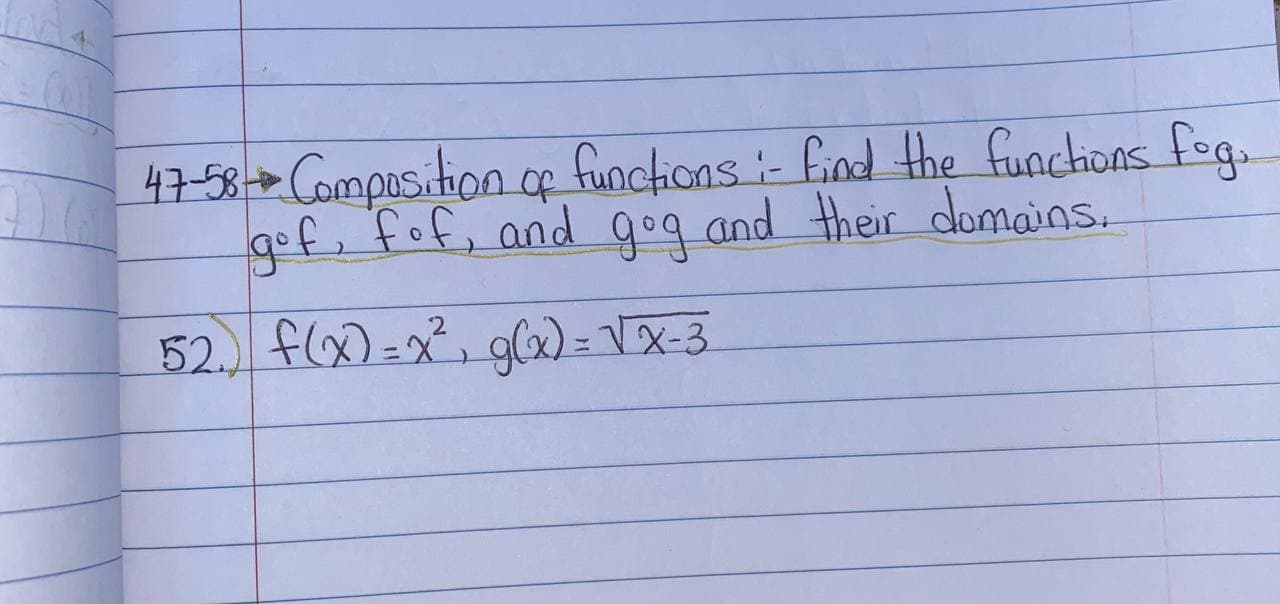 47-58→ Composition of functions :- find the functions fog,
gof, fof, and gog and their domains.
52.) f(x)=x², g(x)=√x-3